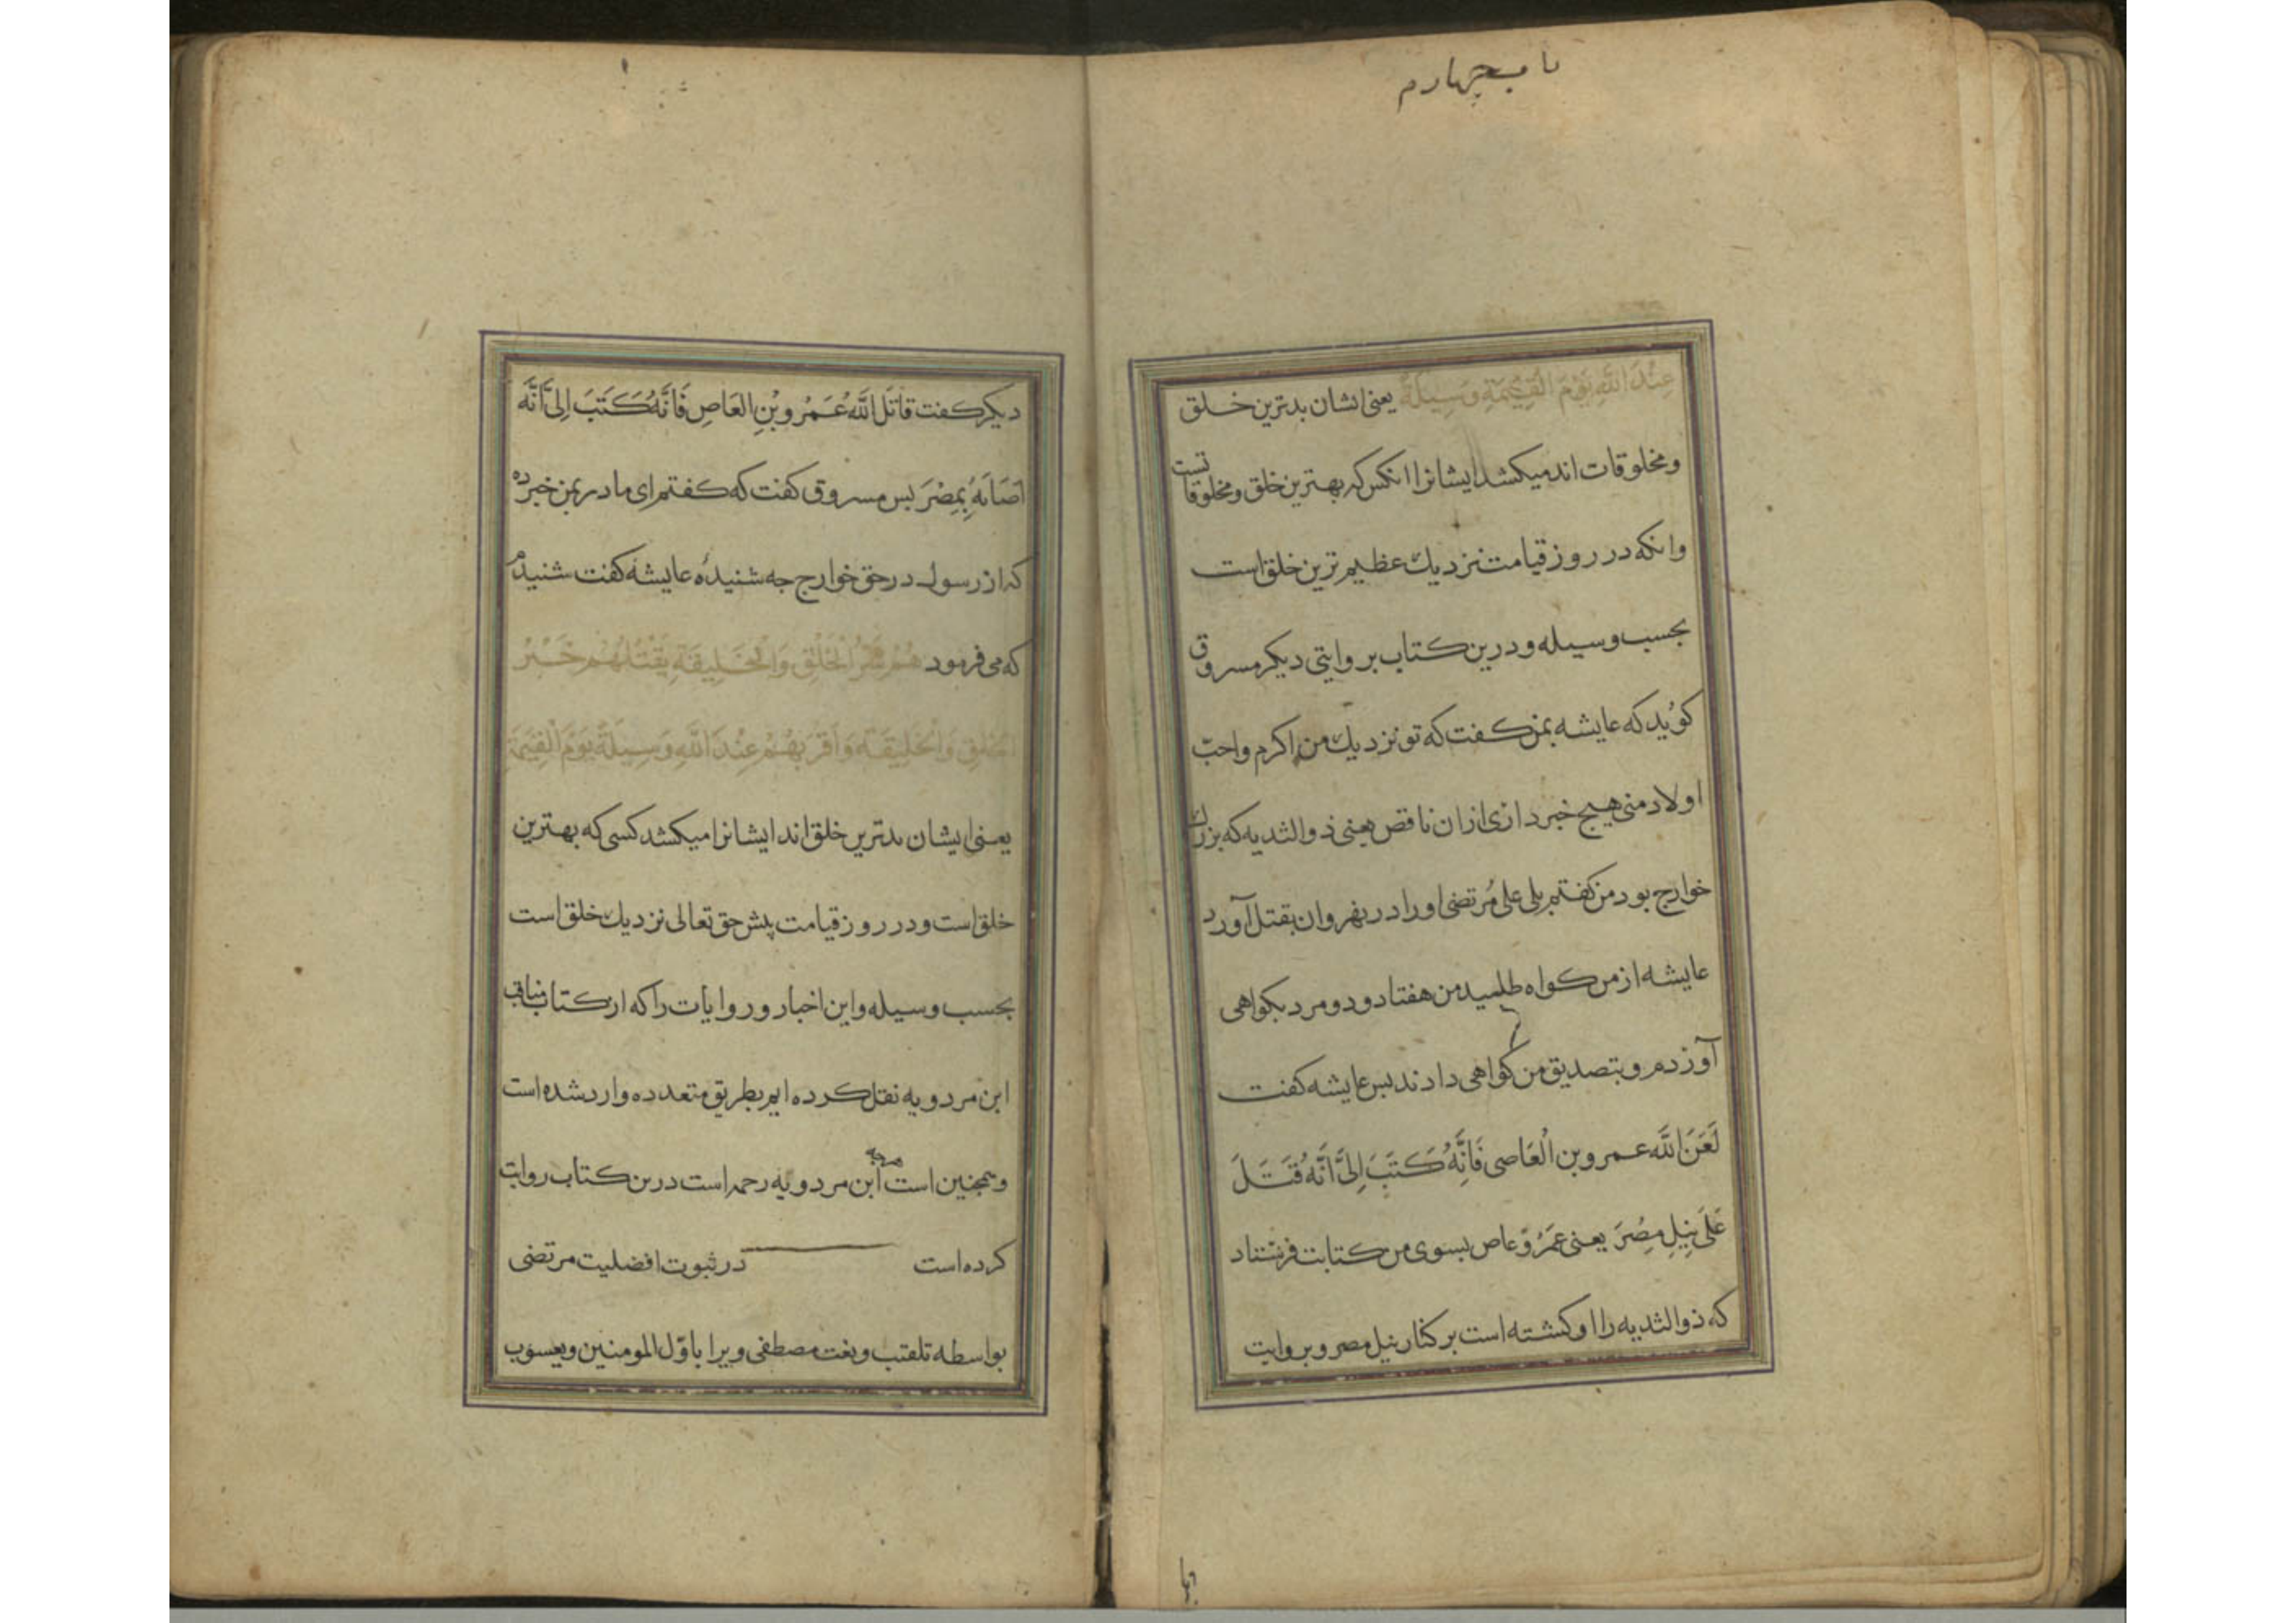 باب چهارم
عِنْدَ اللَّهِ يَوْمَ الْقِيٰمَةِ وَسِيلَةً يعنى ايشان بدترين خلق
ومخلوقات اند ميكشد ايشانرا انكس كه بهترين خلق ومخلوقاتست
وانكه در روز قيامت نزديك عظيم ترين خلق است
بحسب وسيله ودرين كتاب بروايتى ديكر مسروق
كويد كه عايشه بمن كفت كه تو نزديك من اكرم واحبّ
اولاد منى هيچ خبر دارى ازان ناقص يعنى ذوالثديه كه بزرك
خوارج بود من كفتم بلى على مُرتضى اورا در نهروان بقتل آورد
عايشه از من كواه طلبيد من هفتاد ودو مرد بكواهى
آوردم وبتصديق من كواهى دادند بس عايشه كفت
لَعَنَ اللَّه عمرو بن الْعَاصى فَاِنَّهُ كَتَبَ اِلَىَّ اَنَّهُ قَتَلَ
عَلَى نِيلِ مِصْرَ يعنى عَمرو عاص بسوى من كتابت فرستاد
كه ذوالثديه را او كشته است بر كنار نيل مصر وبروايت
بها
ديكر كفت قاتَلَ اللَّهُ عَمْرَو بْنِ العَاصِ فَاِنَّهُ كَتَبَ اِلىَّ اَنَّه
اَصَابَهُ بِمِصْرَ بس مسروق كفت كه كفتم اى مادر بمن خبر ده
كه از رسول در حق خوارج جه شنيدهٔ عايشه كفت شنيدم
كه مى فرمود هُمْ شَرُّ الْخَلْقِ وَالْخَلِيقَةِ يَقْتُلُهُمْ خَيْرُ
الْخَلْقِ وَالْخَلِيقَةِ وَاَقْرَبُهُمْ عِنْدَ اللَّهِ وَسِيلَةً يَوْمَ الْقِيٰمَةِ
يعنى ايشان بدترين خلق اند ايشانرا ميكشد كسى كه بهترين
خلق است ودر روز قيامت پيش حق تعالى نزديك خلق است
بحسب وسيله واين اخبار وروايات را كه از كتاب مناقب
ابن مردويه نقل كرده ايم بطريق متعدده وارد شده است
وهمچنين است ابن مردويه رحمه است درين كتاب روايت
كرده است در ثبوت افضليت مرتضى
بواسطه تلقيب ونعت مصطفى ويرا باوّل المومنين ويعسوب